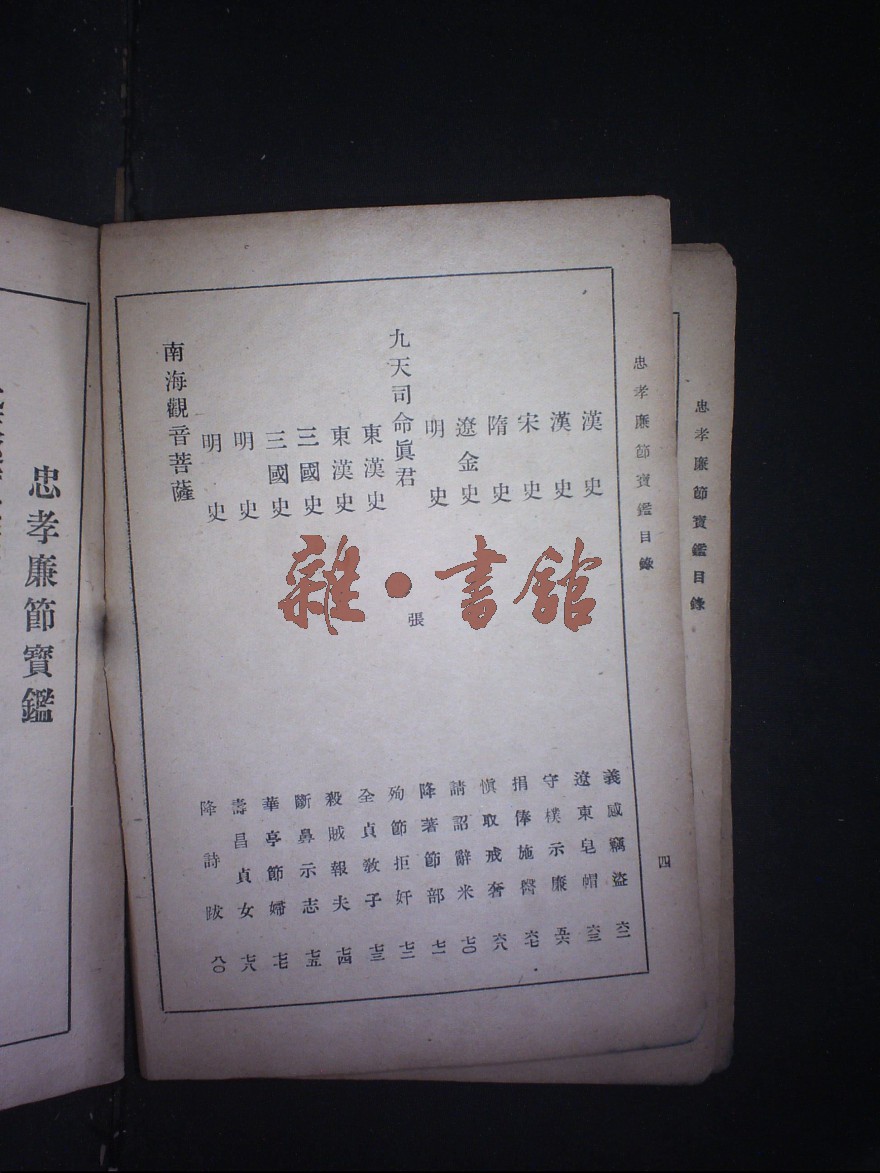 忠孝廉節寶鑑目錄
忠孝廉節寶鑑目錄
四
漢史 義感竊盜 六二
漢史 遼東皂帽 六三
宋史 守樸示廉 五六
隋史 捐俸施醫 六七
遼金史 慎取戒奢 六八
明史 請詔辭米 七〇
九天司命眞君 張 降著節部 七一
東漢史 殉節拒奸 七二
東漢史 全貞敎子 七三
三國史 殺賊報夫 七四
三國史 斷鼻示志 七五
明史 華亭節婦 七七
明史 壽昌貞女 七八
南海觀音菩薩 降詩跋 八〇
忠孝廉節寶鑑
雜·書館